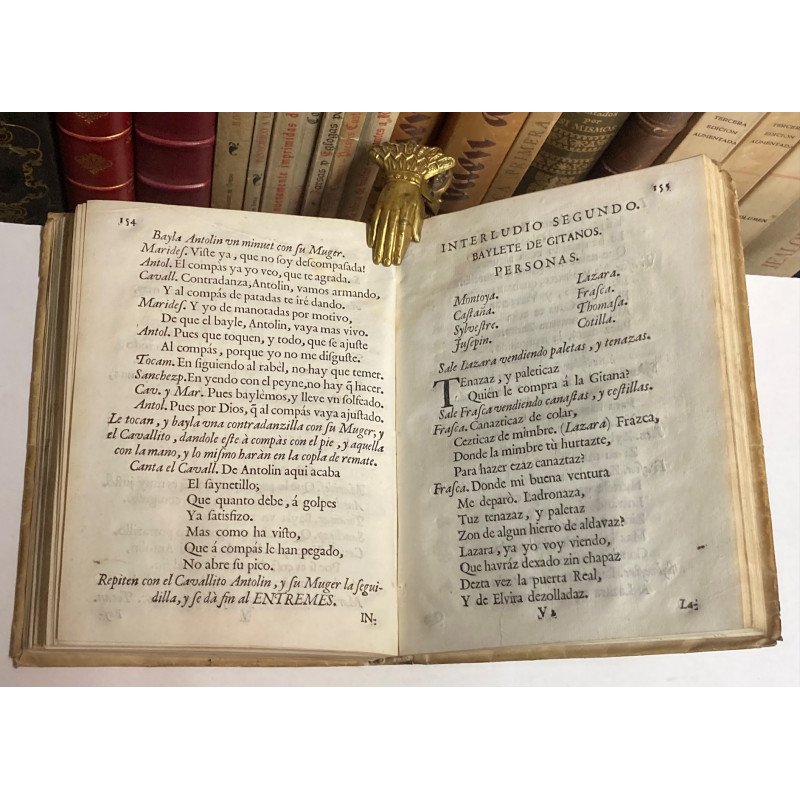 154
Bayla Antolin vn minuet con ſu Muger.
Marideſ. Viſte ya, que no ſoy deſcompaſada!
Antol. El compàs ya yo veo, que te agrada.
Cavall. Contradanza, Antolin, vamos armando,
Y al compás de patadas te iré dando.
Marideſ. Y yo de manotadas por motivo,
De que el bayle, Antolin, vaya mas vivo.
Antol. Pues que toquen, y todo, que ſe ajuſte
Al compàs, porque yo no me diſguſte.
Tocam. En ſiguiendo al rabèl, no hay que temer.
Sanchezp. En yendo con el peyne, no hay q̃ hacer.
Cav. y Mar. Pues baylèmos, y lleve vn ſolfeado.
Antol. Pues por Dios, q̃ al compás vaya ajuſtado.
Le tocan, y bayla vna contradanzilla con ſu Muger, y
el Cavallito, dandole eſte à compàs con el pie, y aquella
con la mano, y lo miſmo haràn en la copla de remate.
Canta el Cavall. De Antolin aqui acaba
El ſaynetillo;
Que quanto debe, á golpes
Ya ſatisfizo.
Mas como ha viſto,
Que á compás le han pegado,
No abre ſu pico.
Repiten con el Cavallito Antolin, y ſu Muger la ſegui-
dilla, y ſe dà fin al ENTREMES.
IN-
155
INTERLUDIO SEGUNDO.
BAYLETE DE GITANOS.
PERSONAS.
Montoya. Lazara.
Caſtaña. Fraſca.
Sylveſtre. Thomaſa.
Juſepin. Cotilla.
Sale Lazara vendiendo paletas, y tenazas.
TEnazaz, y paleticaz
Quièn le compra á la Gitana?
Sale Fraſca vendiendo canaſtas, y ceſtillas.
Fraſca. Canazticaz de colar,
Cezticaz de mimbre. (Lazara) Frazca,
Donde la mimbre tù hurtazte,
Para hazer ezaz canaztaz?
Fraſca. Donde mi buena ventura
Me deparò. Ladronaza,
Tuz tenazaz, y paletaz
Zon de algun hierro de aldavaz?
Lazara, ya yo voy viendo,
Que havráz dexado zin chapaz
Dezta vez la puerta Real,
Y de Elvira dezolladaz.
V2
La-
TERCERA
EDICION
AUMENTADA
TERCERA
EDICION
AUMENTADA
por
MISMOS
PRIMERA